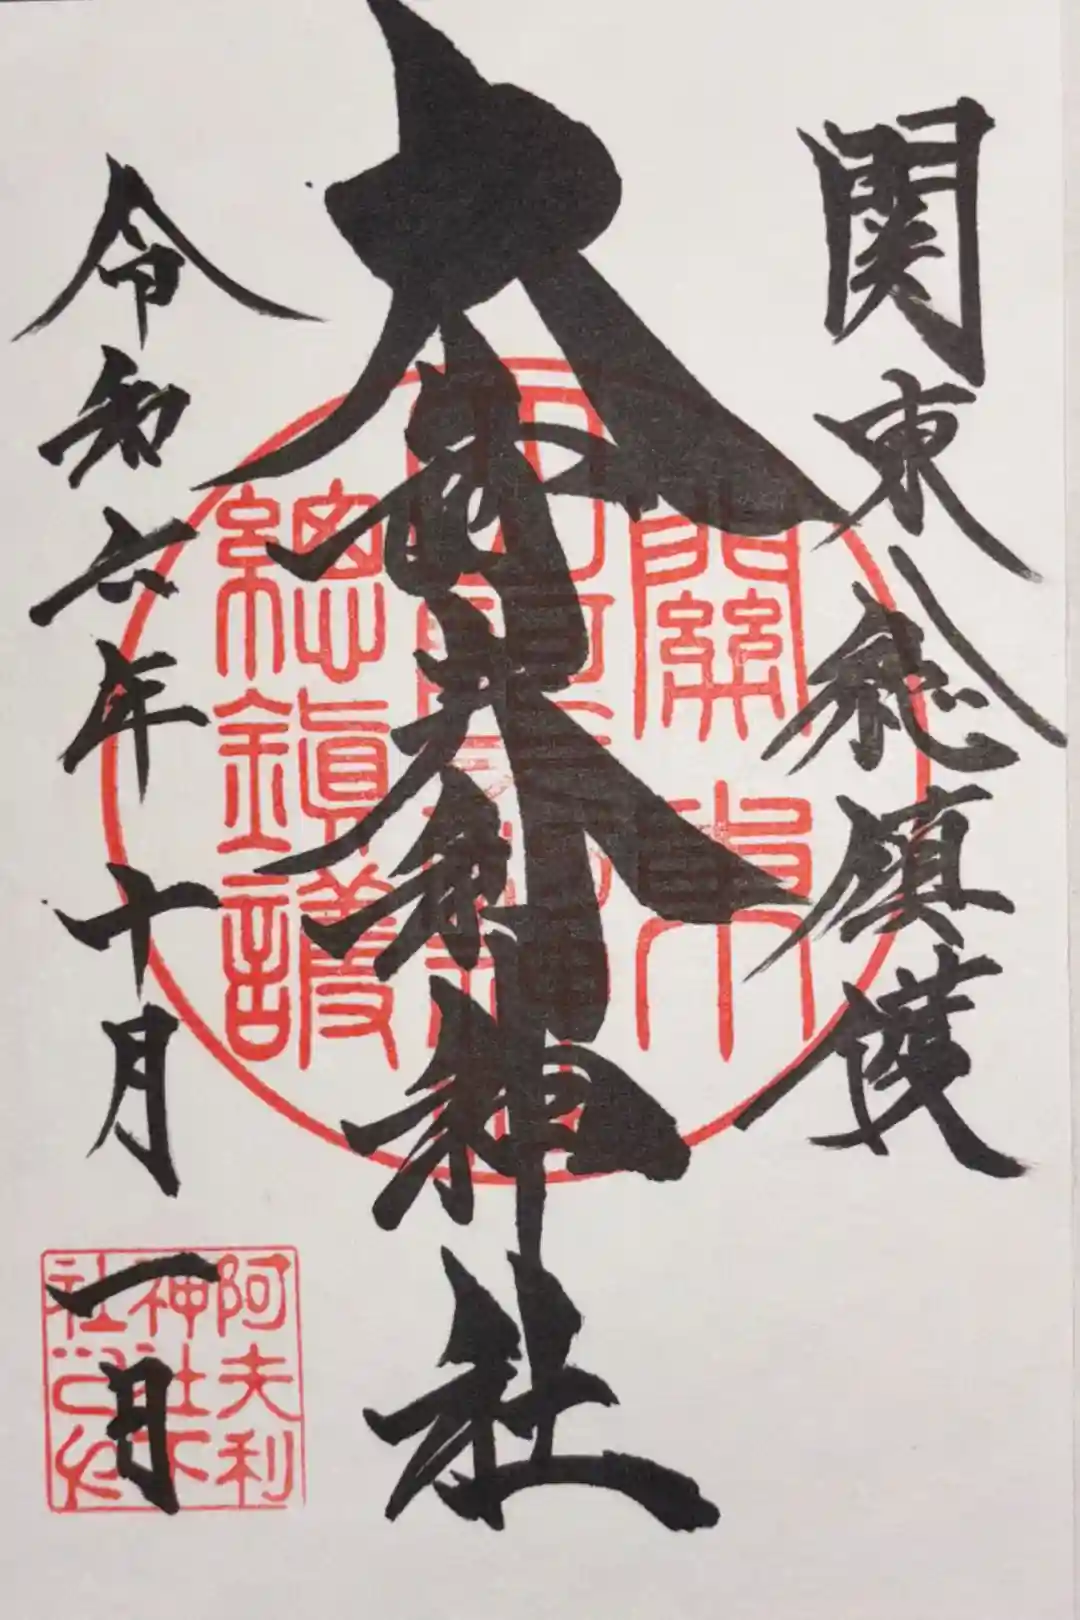 関東総鎮護
大山阿夫利神社
令和六年十月一日
總鎮護
阿夫利
神社下
社之印